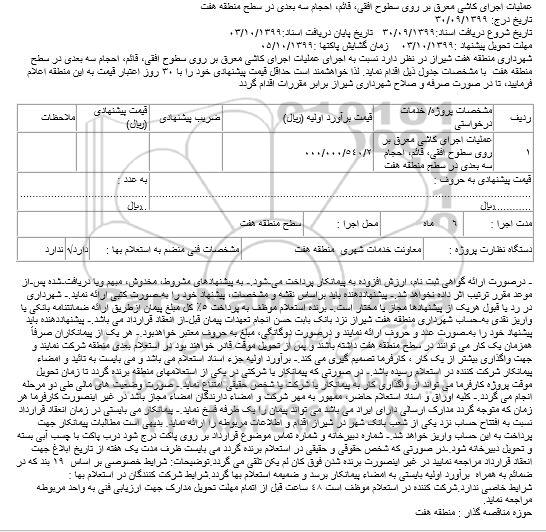 عملیات اجرای کاشی معرق بر روی سطوح افقی، قائم، احجام سه بعدی در سطح منطقه هفت
تاریخ درج: ۳۰/۰۹/۱۳۹۹
تاریخ شروع دریافت اسناد:۳۰/۰۹/۱۳۹۹ تاریخ پایان دریافت اسناد:۰۳/۱۰/۱۳۹۹
مهلت تحویل پیشنهاد :۰۳/۱۰/۱۳۹۹ زمان گشایش پاکتها :۰۵/۱۰/۱۳۹۹
شهرداری منطقه هفت شیراز در نظر دارد نسبت به اجرای عملیات اجرای کاشی معرق بر روی سطوح افقی، قائم، احجام سه بعدی در سطح
منطقه هفت با مشخصات جدول ذیل اقدام نماید. لذا خواهشمند است حداقل قیمت پیشنهادی خود را با ۳۰ روز اعتبار قیمت به این منطقه اعلام
فرمایید، تا در صورت صرفه و صلاح شهرداری شیراز برابر مقررات اقدام گردد
ردیف مشخصات پروژه/ خدمات درخواستی قیمت برآورد اولیه (ریال) ضریب پیشنهادی قیمت پیشنهادی (ریال) ملاحظات
۱ عملیات اجرای کاشی معرق بر روی سطوح افقی، قائم، احجام سه بعدی در سطح منطقه هفت ۰۰۰/۰۰۰/۵٤۰/۲
قیمت پیشنهادی به حروف : به عدد :
............ریال ریال
مدت اجرا : ٦ ماه محل اجرا : سطح منطقه هفت
دستگاه نظارت پروژه : معاونت خدمات شهری منطقه هفت مشخصات فنی منضم به استعلام بها : دارد/۹ ندارد
ـ درصورت ارائه گواهی ثبت نام، ارزش افزوده به پیمانکار پرداخت می‌شود.ـ به پیشنهادهای مشروط، مخدوش، مبهم ویا دریافت‌شده پس‌از
موعد مقرر ترتیب اثر داده نخواهد شد.ـ پیشنهاددهنده باید براساس نقشه و مشخصات، پیشنهاد خود را به‌صورت کتبی ارائه نماید.ـ شهرداری
در رد یا قبول هریک از پیشنهادها مجاز یا مختار است.ـ برنده استعلام موظف به پرداخت ۵٪ کل مبلغ پیمان ازطریق ارائه ضمانتنامه بانکی یا
واریز نقدی به‌حساب شهرداری منطقه هفت شیراز نزد بانک بابت حسن انجام تعهدات پیمان قبل‌از انعقاد قرارداد می باشد.ـ پیشنهاددهنده باید
پیشنهاد خود را به‌صورت عدد و حروف ارائه نمایند و درصورت دوگانگی، مبلغ به حروف معتبر خواهدبود.ـ هر یک از پیمانکاران صرفاً
همزمان یک کار می توانند در سطح منطقه هفت داشته باشند و پس از تحویل موقت قادر خواهند بود در استعلام بعدی منطقه شرکت نمایند و
جهت واگذاری بیشتر از یک کار ، کارفرما تصمیم گیری می کند.ـ برآورد اولیه جزء اسناد استعلام می باشد و می بایست به تائید و امضاء
پیمانکار شرکت کننده در استعلام رسیده باشد.ـ در صورتی که پیمانکار یا شرکتی در یکی از استعلامهای منطقه برنده گردد تا زمان تحویل
موقت پروژه کارفرما می تواند از واگذاری کار به پیمانکار یا شرکت یا شخص حقیقی امتناع نماید.ـ صورت وضعیت های مالی طی دو مرحله
انجام می گردد.ـ کلیه اوراق و اسناد استعلام حاضر، ممهور به مهر شرکت و امضاء دارندگان امضاء مجاز باشد در غیر اینصورت کارفرما هر
زمان که متوجه گردد مدارک ارسالی دارای ایراد می باشد می تواند پیمان را یک طرفه فسخ نماید.ـ پیمانکار می بایستی در زمان انعقاد قرارداد
نسبت به افتتاح حساب نزد یکی از شعب بانک شهر در شیراز اقدام و اطلاعات مربوطه را ارائه نماید. بدیهی است مطالبات پیمانکار جهت
پرداخت به این حساب واریز خواهد شد.ـ شماره دبیرخانه و شماره تماس موضوع قرارداد بر روی پاکت درج شود درب پاکت با چسب آبی بسته
و تحویل دبیرخانه شود.ـدر صورتی که شخص حقوقی و حقیقی در استعلام برنده گردد می بایست ظرف مدت یک هفته از تاریخ ابلاغ جهت
انعقاد قرارداد مراجعه نمایید در غیر اینصورت برنده شدن فوق کان لم یکن تلقی می گردد.توضیحات: شرایط خصوصی بر اساس ۱۹ بند که در
ضمائم به همراه برآورد اولیه بایستی به امضاء پیمانکار برسد و ضمیمه استعلام بها گردد.شرایط شرکت کنندگان در استعلام بها :
شرایط خاصی ندارد.شرکت کننده در استعلام موظف است ٤۸ ساعت قبل از اتمام مهلت تحویل مدارک جهت ارزیابی فنی به واحد مربوطه
مراجعه نماید.
حوزه مناقصه گذار : منطقه هفت